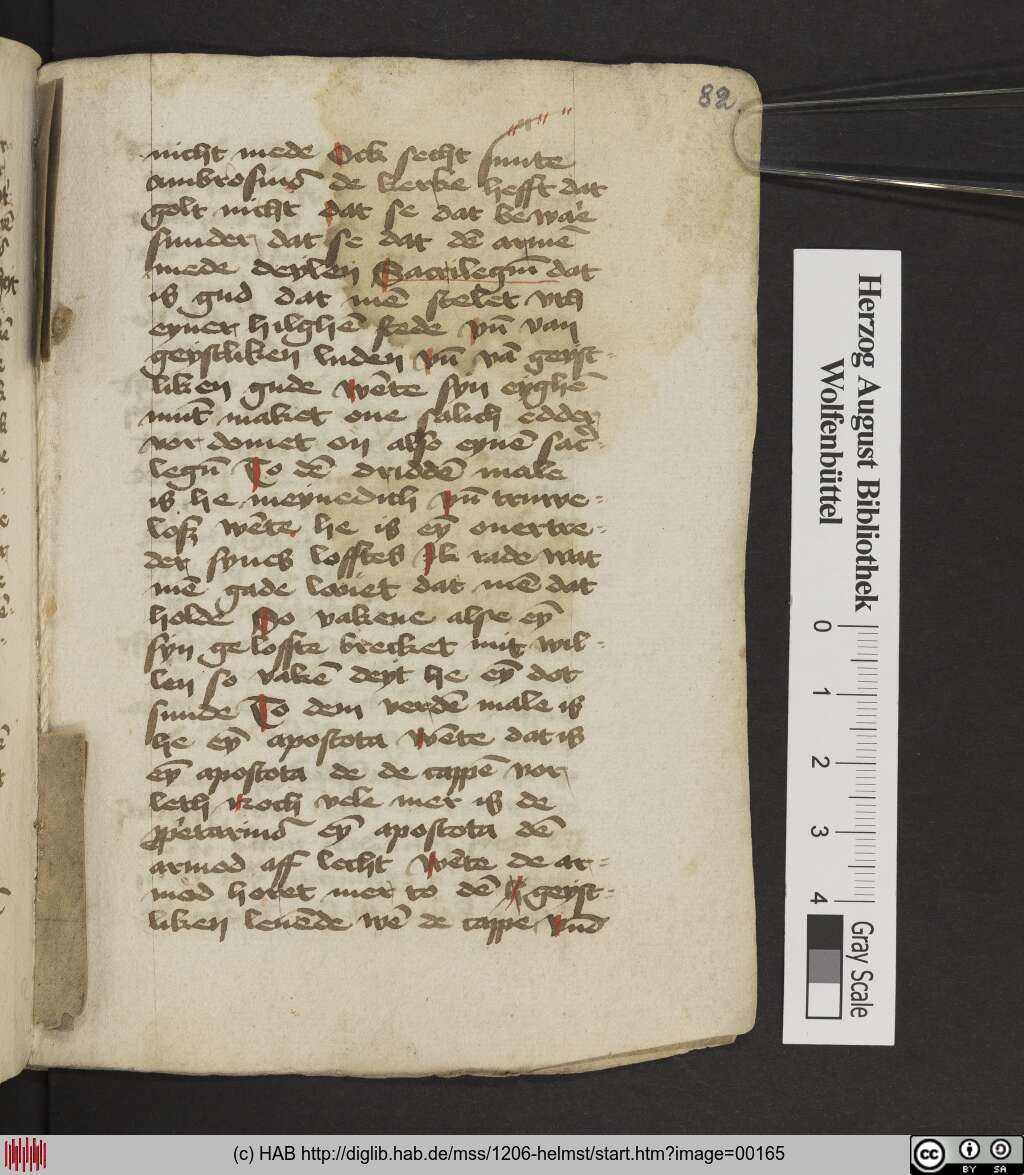 82
nicht mede Ock secht sunte
ambrosius de kerke hefft dat
golt nicht dat se dat beware
sunder dat se dat dē armē
mede deylen Sacrilegiū dat
is gud dat mē stelet vth
eyner hilghē stede vn̄ van
geystliken luden vn̄ vā geyst-
liken gude wēte syn eyghē
munt maket one salich edder
vor domet on also eynē sac-
legū To dē driddē male
is he meynedich vn̄ truwe-
losz wēte he is eȳ ouertre-
der synes lofftes Ik rade wat
mē gade louet dat mē dat
holde So vakene alse eȳ
syn gelosste brecket mit wil-
len so vakē deyt he eȳ dot
sunde To dem verdē male is
he eȳ apostota wēte dat is
eȳ apostota de de cappē vor
leth Noch vele mer is de
eȳ apostota dē
armod aff lecht wēte de ar-
mod horet mer to dē geyst-
liken leuēde wē de cappe vnd
Herzog August Bibliothek
Wolfenbüttel
0 1 2 3 4
Gray Scale
(c) HAB http://diglib.hab.de/mss/1206-helmst/start.htm?image=00165
cc BY SA